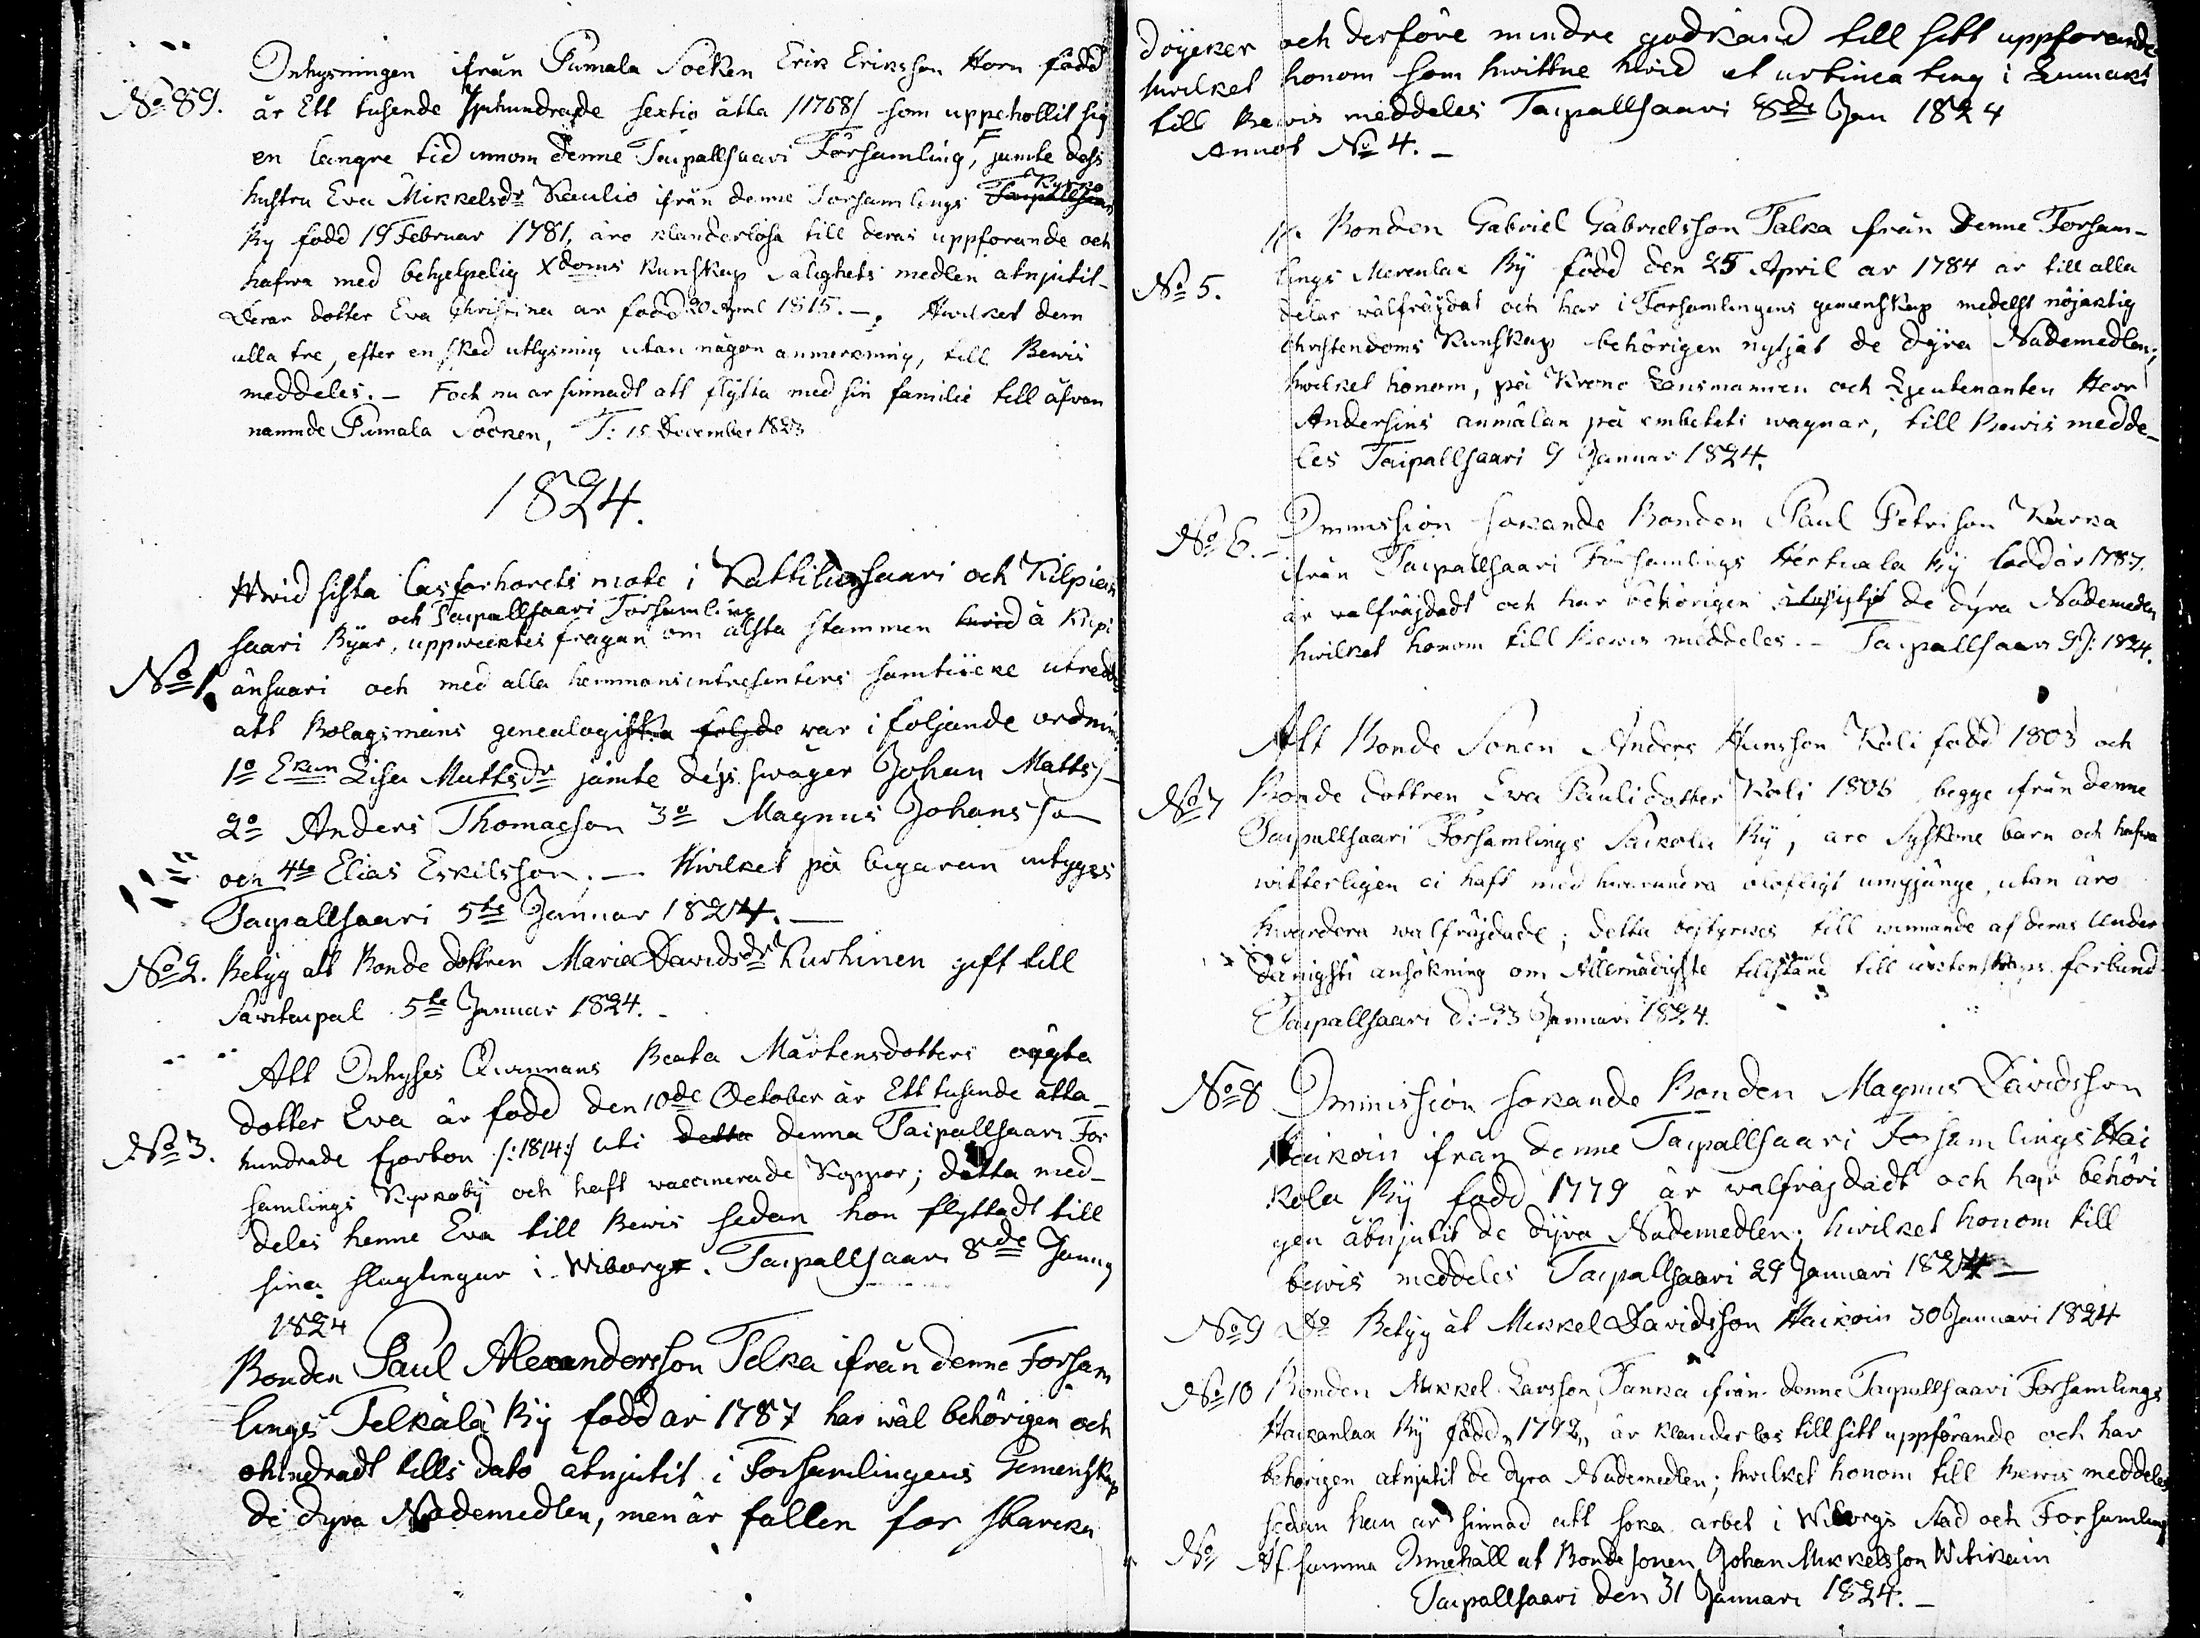 Inhysningen ifrån Pumala Socken Erik Eriksson Horn född
No 89. år Ett tusende Sjuhundrade sextio åtta /1768/ som uppehollit sig
en langre tid innom denne Taipallsaari Församling, F jemte dess
hustru Eva Mikkelsdr Kaulio ifrån denne Församlings Taipallsaari Kyrko
By född 19 Februar 1781, äro klanderlösa till deras uppförande och
hafwa med behjelpelig Xdoms Kunskap Salighets medlen atnjutit.
Deras dotter Eva Christina är född 20 April 1815. — Hwilket dem
alla tre, efter en sked utlysning utan någon anmerkning, till Bewis
meddeles. — F och nu ar sinnadt att flytta med sin familie till åfvan
namnde Pumala Socken, T: 15 December 1823
1824.
Hwid sista Lasforhorets mote i Kattilansaari och Kilpian
och Taipallsaari Församling
saari Byar, uppwecktes fragan om älsta stammen hwid å Kilpi
No 1. änsaari och med alla hemmansintresenters samtÿcke utredd
att Bolagsmäns genealogiska folgde war i följande ordning
1o Ekan Lisa Mattsdr jämte dess swåger Johan Matts
2o Anders Thomasson 3o Magnus Johansson
och 4to Elias Eskilsson. — Hwilket på begaran intyges
Taipallsaari 5te Januar 1824. —
No 2. Betyg att Bonde dottren Maria Davidsdr Hurhinen gift till
Savitaipal 5te Januar 1824. -
Att Inhyses Qwinnans Beata Mårtensdotters oägta
dotter Eva är född den 10de October år Ett tusende åtta
No 3. hundrade fjorton /:1814:/ uti detta denna Taipallsaari För
samlings Kyrkobÿ och haft waccinerade Koppor; detta med-
deles henne Eva till Bewis sedan hon flyttadt till
sina slagtingar i Wiborg. Taipallsaari 8de Janu
1824
Bonden Paul Alexandersson Telka ifrån denne Forsam
lings Telkälä Bÿ född år 1787 har wäl behörigen och
ohindradt tills dato atnjutit i Forsamlingens Gemenskap
de dyra Nådemedlen, men är fallen for starcka
doÿcker och derföre mindre godkand till sitt uppforande
hwilket honom som hwittne hwid et urtinea ting i Lumäki
till Bewis meddeles Taipallsaari 8de Jan 1824
Annot No 4. —
Bonden Gabriel Gabrielsson Talka från denne Forsam-
No 5. lings Merenlax Bÿ född den 25 April år 1784 är till alla
delar wälfräjdat och har i Forsamlingens gemenskap medelst nöjaktig
Christendoms Kunskap behörigen nytjat de dÿra Nådemedlen;
hwilket honom, på Krono Länsmannen och Lieutenanten Herr
Andersins anmälan på embetets wagnar, till Bewis medde-
les Taipallsaari 9 Januar 1824.
No 6. - Ommission sokande Bonden Paul Petrison Karka
ifrån Taipallsaari Församlings Hertuala Bÿ född år 1787.
är walfräjdadt och har behörigen de dÿra Nådemedlen
hwilket honom till Bewis meddeles. — Taipallsaari 9 J: 1824.
Att Bonde Sonen Anders Hansson Käli född 1803 och
No 7 Bonde dottren Eva Paulidotter Käli 1806 begge ifrån denne
Taipallsaari Församlings Saikola Bÿ, äro Syskone barn och hafwa
witterligen ei haft med hwarandra olofligt umgjänge, utan äro
hwardera walfräjdade; detta bestyrkes till winnande af deras Under
dånigste ansökning om Allernådigste tillstånd till äcktenskaps forbund
Taipallsaari d: 23 Januari 1824.
No 8 Ommission sokande Bonden Magnus Davidsson
Haikoin ifrån denne Taipallsaari Forsamlings Hai
kola Bÿ född 1779 är walfräjdadt och har behöri
gen åtnjutit de dÿra Nådemedlen; hwilket honom till
bewis meddeles Taipallsaari 29 Januari 1824 —
No 9 Do Betyg åt Mikkel Davidsson Haikoin 30 Januari 1824
No 10 Bonden Mikkel Larsson Panka ifrån denne Taipallsaari Forsamlings
Haikanlax By född „1792„ är klanderlos till sitt uppförande och har
behörigen atnjutit de dyra Nådemedlen; hwilket honom till Bewis meddeles
sedan han är sinnad att soka arbet i Wiborgs stad och Forsamling
No Af samma Innehåll åt Bonde sonen Johan Mikkelsson Witikain
Taipallsaari den 31 Januari 1824. —